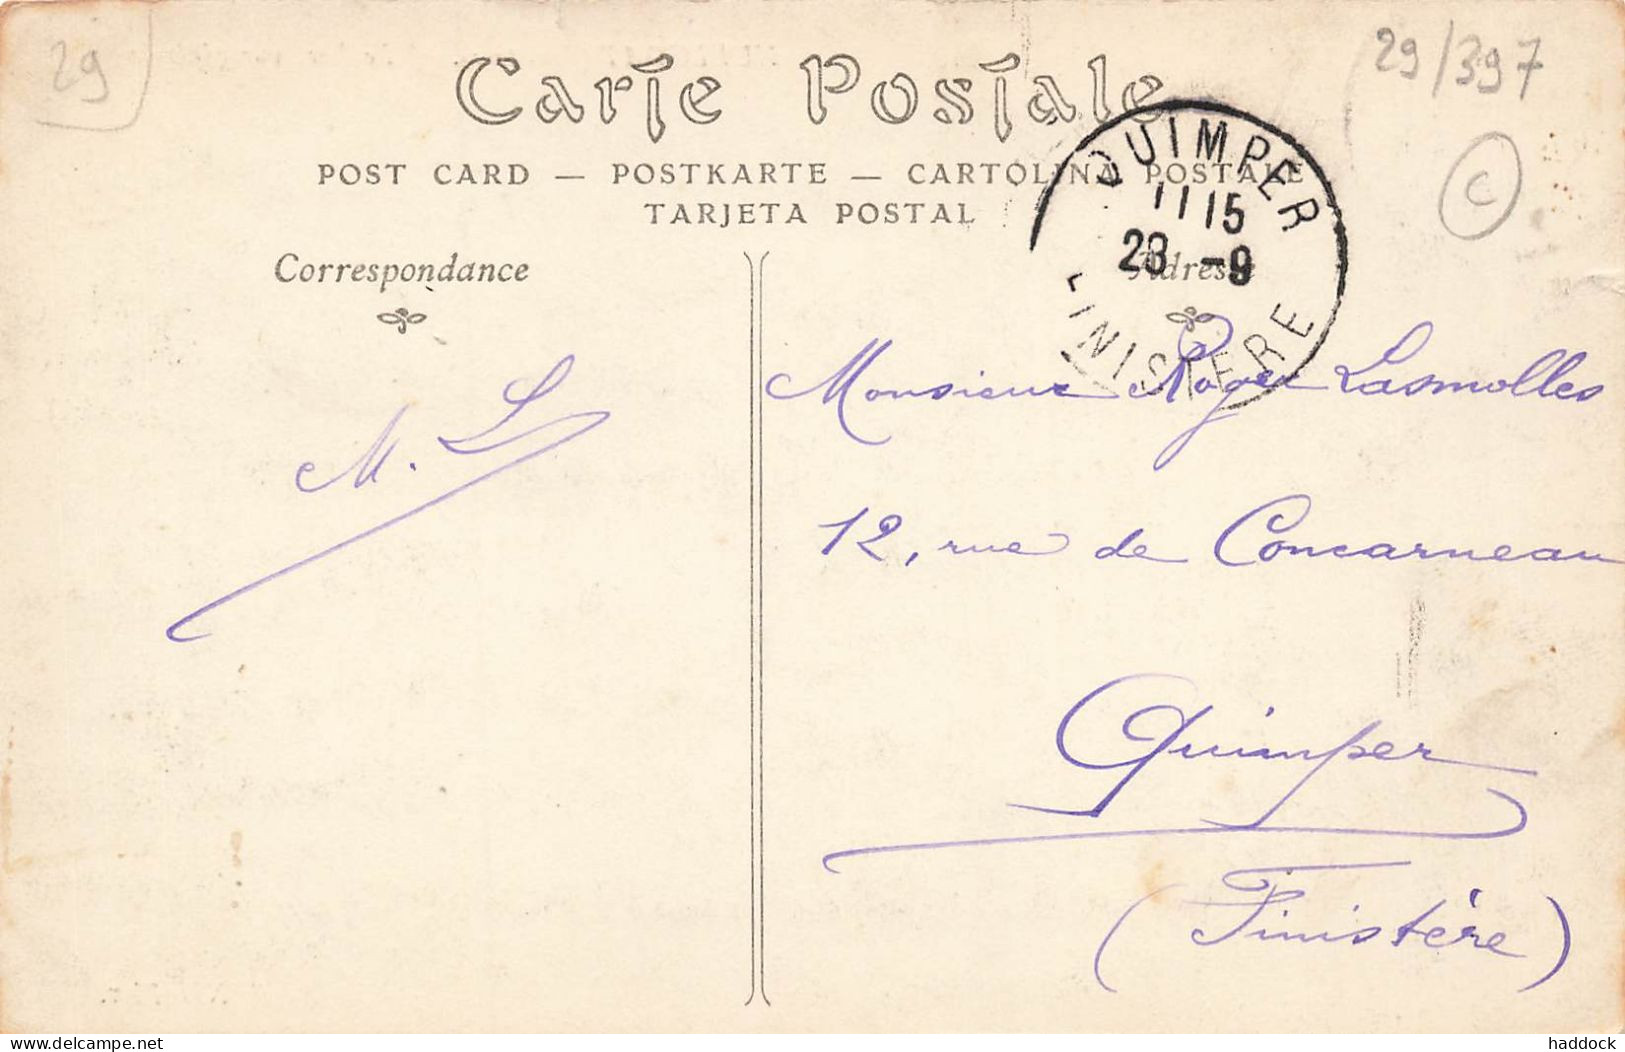 29
29/397
Carte Postale
C
POST CARD — POSTKARTE — CARTOLINA POSTALE
TARJETA POSTAL
QUIMPER
11 15
28 -9
FINISTERE
Correspondance
Adresse
M. L
Monsieur Roger Lasmolles
12, rue de Concarneau
Quimper
(Finistère)
delcampe.net
haddock